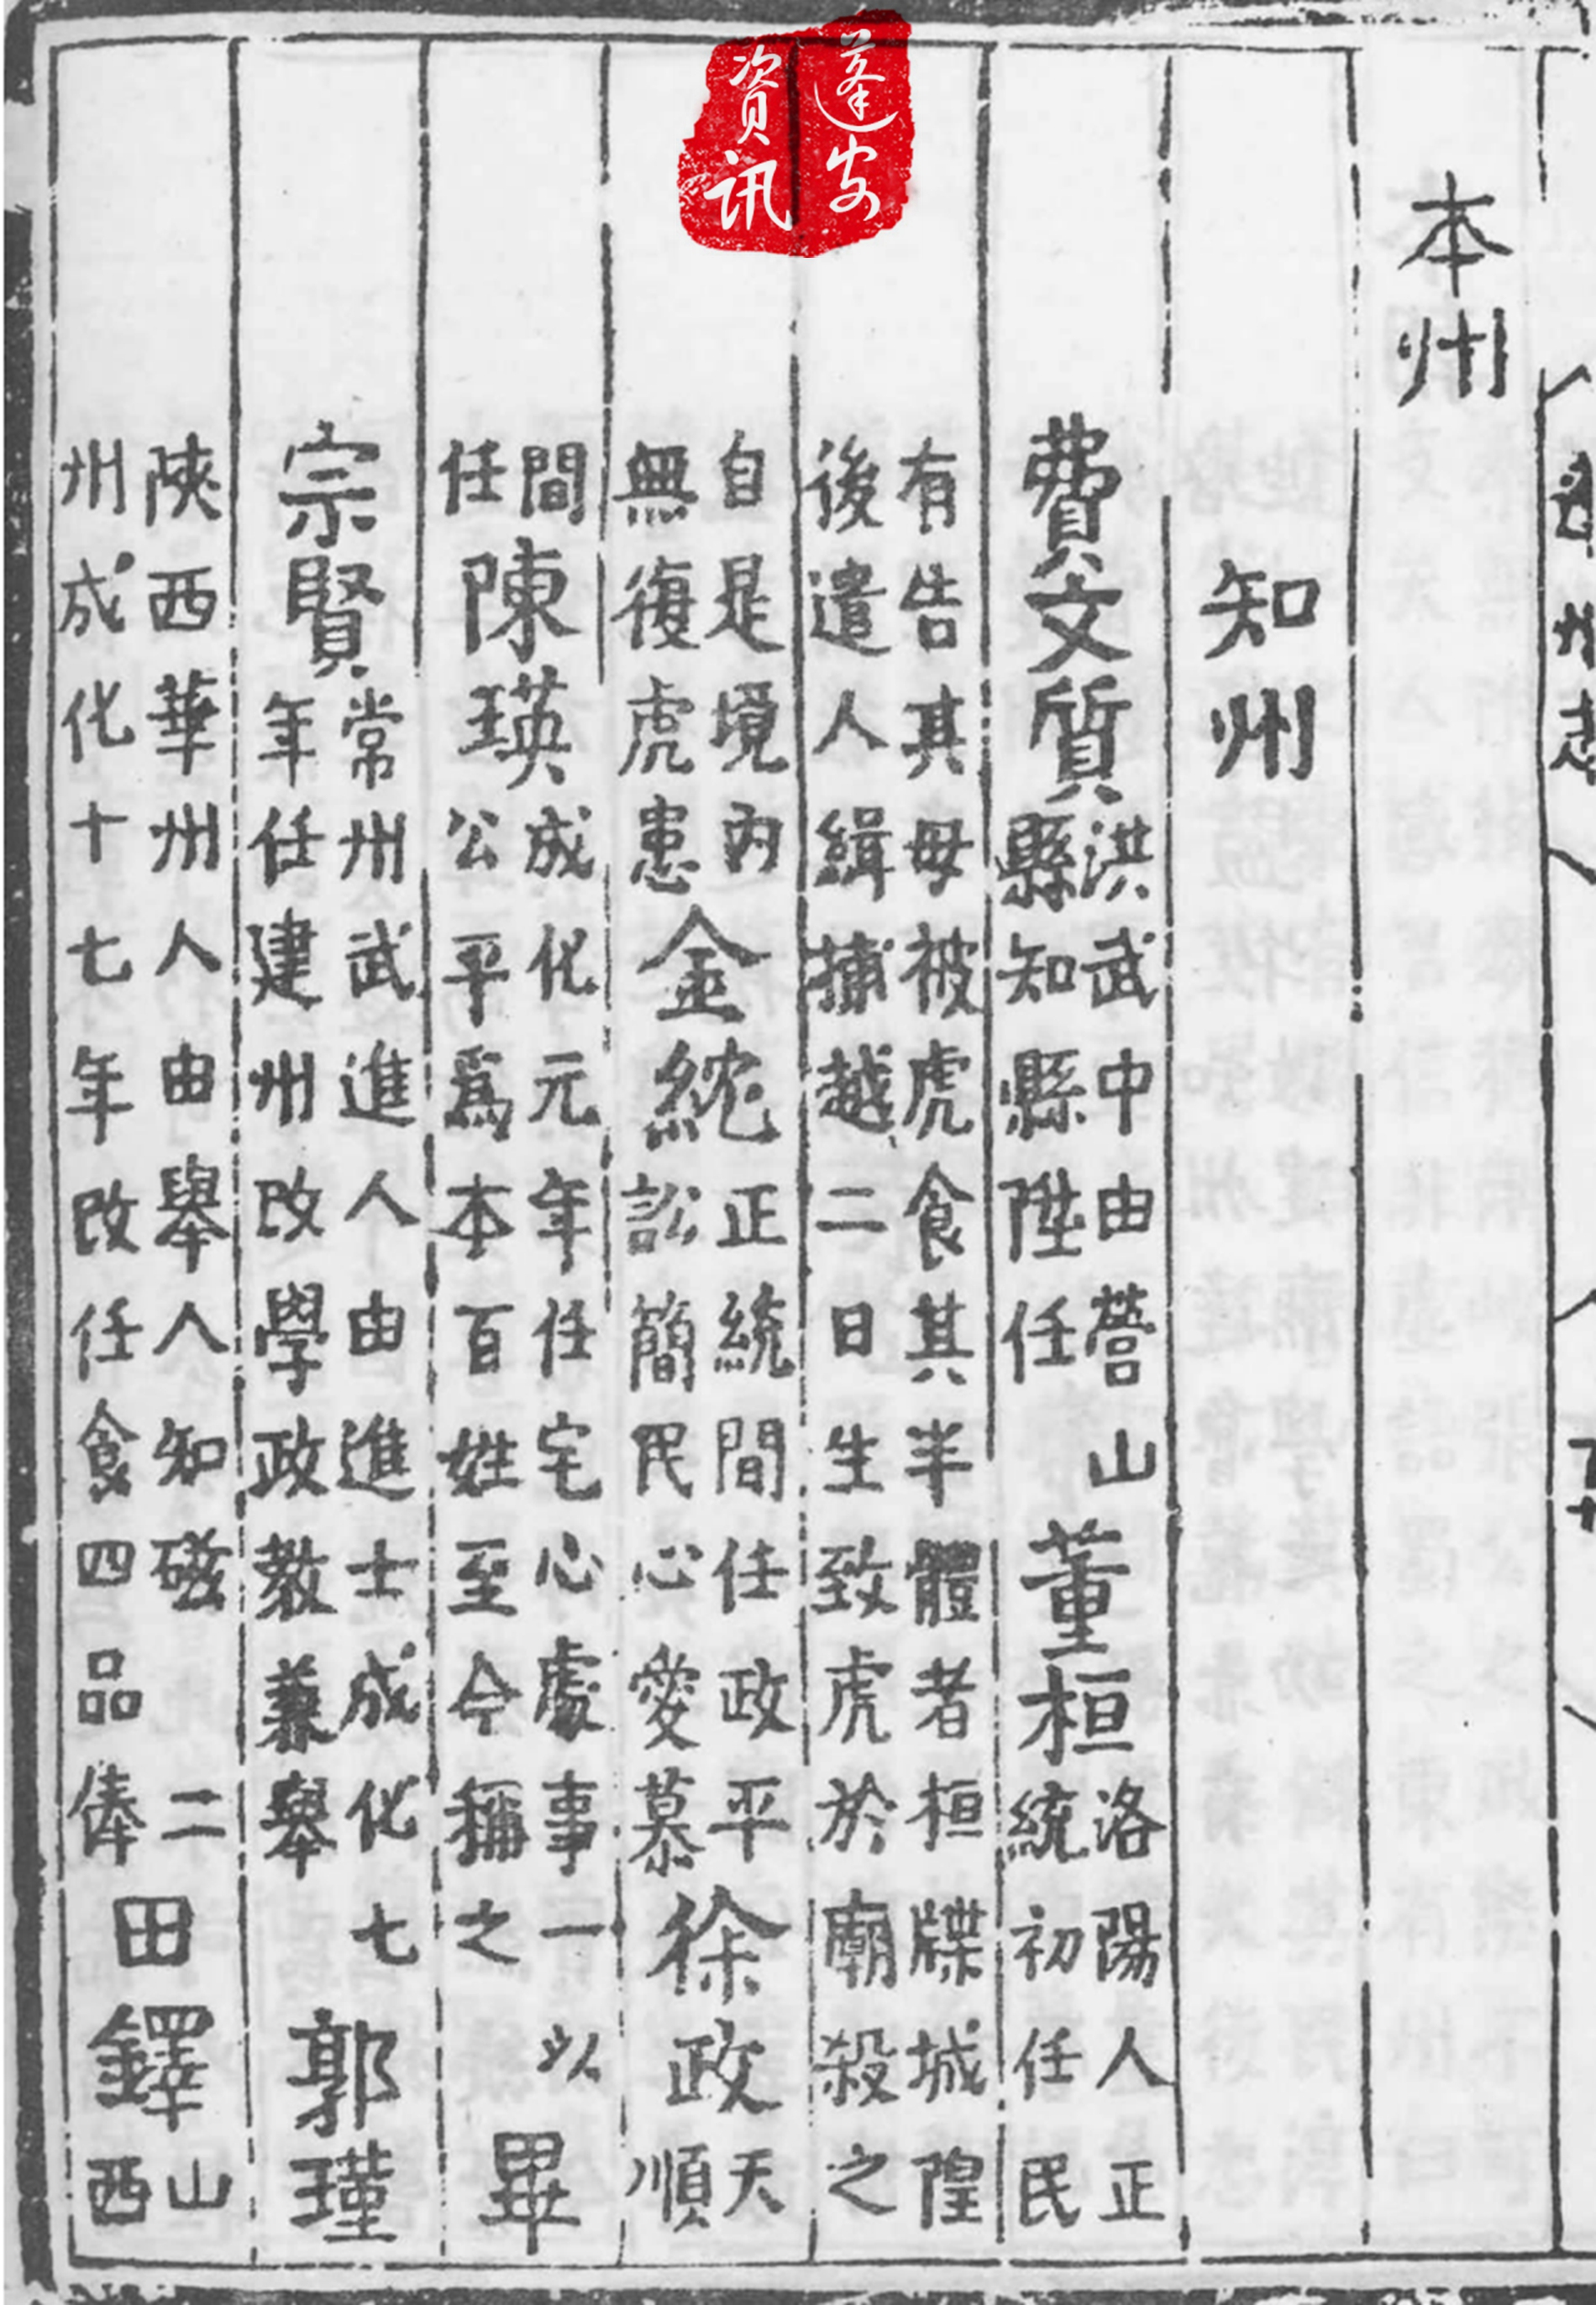 蓬安
资讯
本州
知州
費文質
洪武中由營山
縣知縣陞任
董桓
洛陽人正
統初任民
有告其母被虎食其半體者桓牒城隍
後遣人緝捕越二日生致虎於廟殺之
自是境內
無復虎患
金統
正統間任政平
訟簡民心愛慕
徐政
天
順
間
任
陳瑛
成化元年任宅心處事一以
公平爲本百姓至今稱之
畢
宗賢
常州武進人由進士成化七
年任建州改學政教兼舉
郭瑾
陝西華州人由舉人知磁二
州成化十七年改任食四品俸
田鐸
山
西